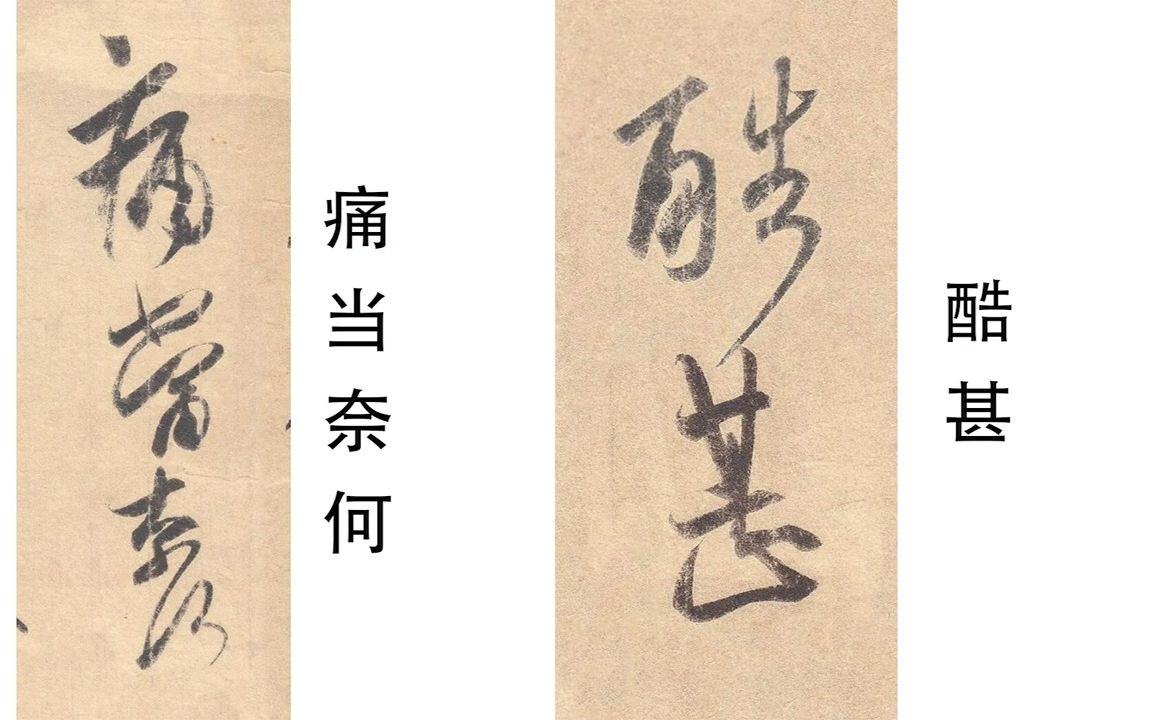 痛當奈何
痛当奈何
酷甚
酷甚